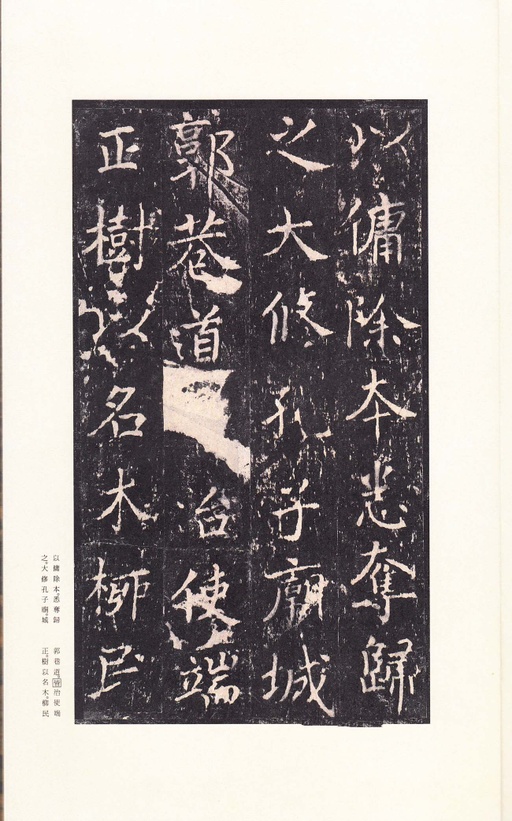 以傭除本悉奪歸
之大修孔子廟城
郭巷道　治使端
正樹以名木柳民
以傭除本。悉奪歸
之。大修孔子廟。城
郭巷道。皆治使端
正。樹以名木。柳民